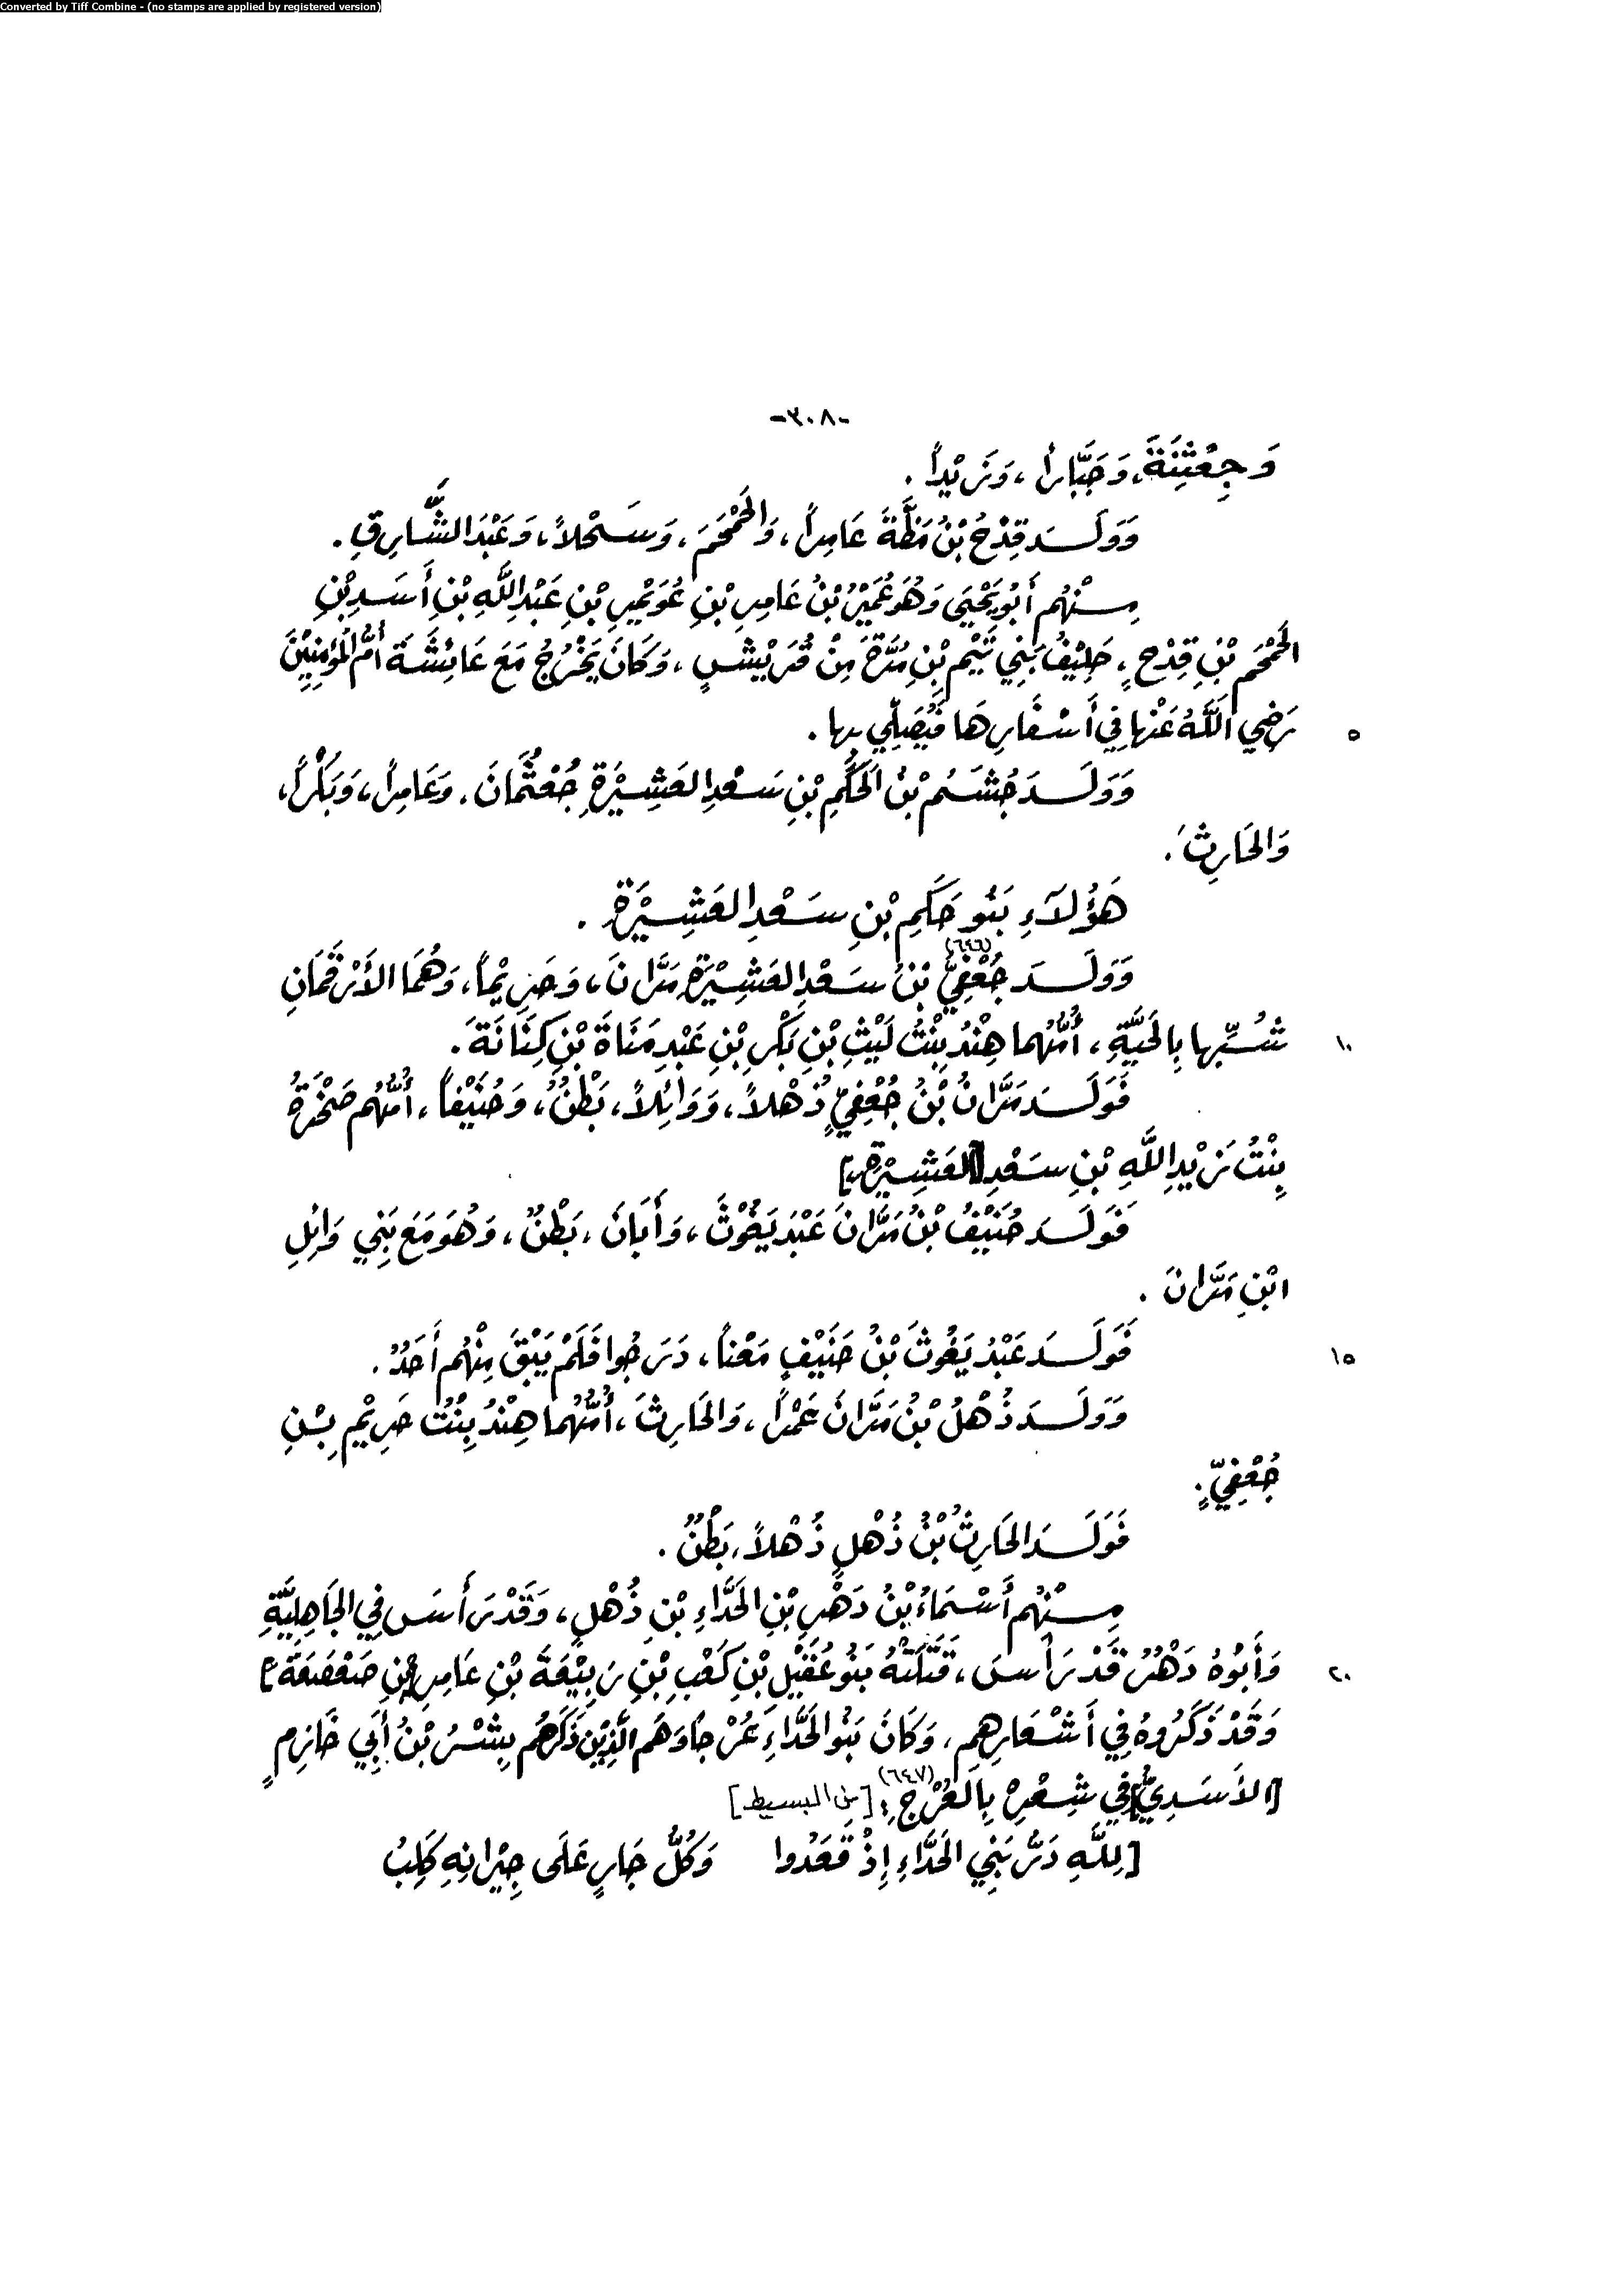 Converted by Tiff Combine - (no stamps are applied by registered version)
-٣٠٨-
وَجِعْثِنَةَ، وَجَبَّاراً، وَزَيْداً.
وَوَلَـدَ قِدْحُ بْنُ مَظَّةَ عَامِراً، وَالحَمْحَمَ، وَسَـحْلاً، وَعَبْدَ الشَّارِقِ.
مِـنْهُم أَبُو يَحْيَى وَهُوَ عُمَيْرُ بْنُ عَامِرِ بْنِ عُوَيْمِرِ بْنِ عَبْدِ اللَّهِ بْنِ أَسَـدِ بْنِ
الحَمْحَمِ بْنِ قِدْحٍ، حَلِيْفُ بَنِي تَيْمِ بْنِ مُرَّةَ مِنْ قُرَيْشٍ، وَكَانَ يَخْرُجُ مَعَ عَائِشَةَ أُمِّ المُؤْمِنِيْنَ
٥ رَضِي اللَّهُ عَنْها فِي أَسْفَارِهَا فَيُصَلِّي بِها.
وَوَلَـدَ جُشَـمُ بْنُ الحَكَمِ بْنِ سَعْدِ العَشِـيْرَةِ جُعْثُمَانَ، وَعَامِراً، وَبَكْراً،
وَالحَارِثَ.
هَؤُلَاءِ بَنُو حَكَمِ بْنِ سَعْدِ العَشِـيْرَةِ.
وَوَلَـدَ جُعْفِيُّ (٦٤٦) بْنُ سَـعْدِ العَشِـيْرَةِ مَرَّانَ، وَحَرِيْماً، وَهُمَا الأَرْقَمَانِ
١٠ شُـبِّها بِالحَيَّةِ، أُمُّهُما هِنْدُ بِنْتُ لَيْثِ بْنِ بَكْرِ بْنِ عَبْدِ مَنَاةَ بْنِ كِنَانَةَ.
فَوَلَـدَ مَرَّانُ بْنُ جُعْفِيٍّ ذُهْلاً، وَوَائِلاً، بَطْنٌ، وَحُنَيْفاً، أُمُّهُم صَخْرَةُ
بِنْتُ زَيْدِ اللَّهِ بْنِ سَعْدِ [العَشِـيْرَةِ]
فَوَلَـدَ حُنَيْفُ بْنُ مَرَّانَ عَبْدَ يَغُوْثَ، وَأَبَانَ، بَطْنٌ، وَهُوَ مَعَ بَنِي وَائِلِ
ابْنِ مَرَّانَ.
١٥ فَوَلَـدَ عَبْدُ يَغُوثَ بْنُ حُنَيْفٍ مَعْناً، دَرَجُوا فَلَمْ يَبْقَ مِنْهُم أَحَدٌ.
وَوَلَـدَ ذُهْلُ بْنُ مَرَّانَ عَمْراً، وَالحَارِثَ، أُمُّهُما هِنْدُ بِنْتُ حَرِيْمِ بْـنِ
جُعْفِيٍّ.
فَوَلَـدَ الحَارِثُ بْنُ ذُهْلٍ ذُهْلاً، بَطْنٌ.
مِـنْهُم أَسْمَاءُ بْنُ دَهْرِ بْنِ الحَدَّاءِ بْنِ ذُهْلٍ، وَقَدْ رَأَسَ فِي الجَاهِلِيَّةِ
٢٠ وَأَبُوهُ دَهْرٌ قَدْ رَأَسَ، قَتَلَتْهُ بَنُو عُقَيْلِ بْنِ كَعْبِ بْنِ رَبِيْعَةَ بْنِ عَامِرِ [بْنِ صَعْصَعَةَ]
وَقَدْ ذَكَرُوهُ فِي أَشْعَارِهِم، وَكَانَ بَنُو الحَدَّاءِ عُرْجاً وَهُم الَّذِيْنَ ذَكَرَهُم بِشْـرُ بْنُ أَبِي خَازِمٍ
[الأَسَدِيُّ] فِي شِعْرِهِ بِالعُرْجِ (٦٤٧): [مِن البسيط]
[لِلَّهِ دَرُّ بَنِي الحَدَّاءِ إِذْ قَعَدُوا وَكُلُّ جَارٍ عَلَى جِيْرَانِهِ كَلِبُ